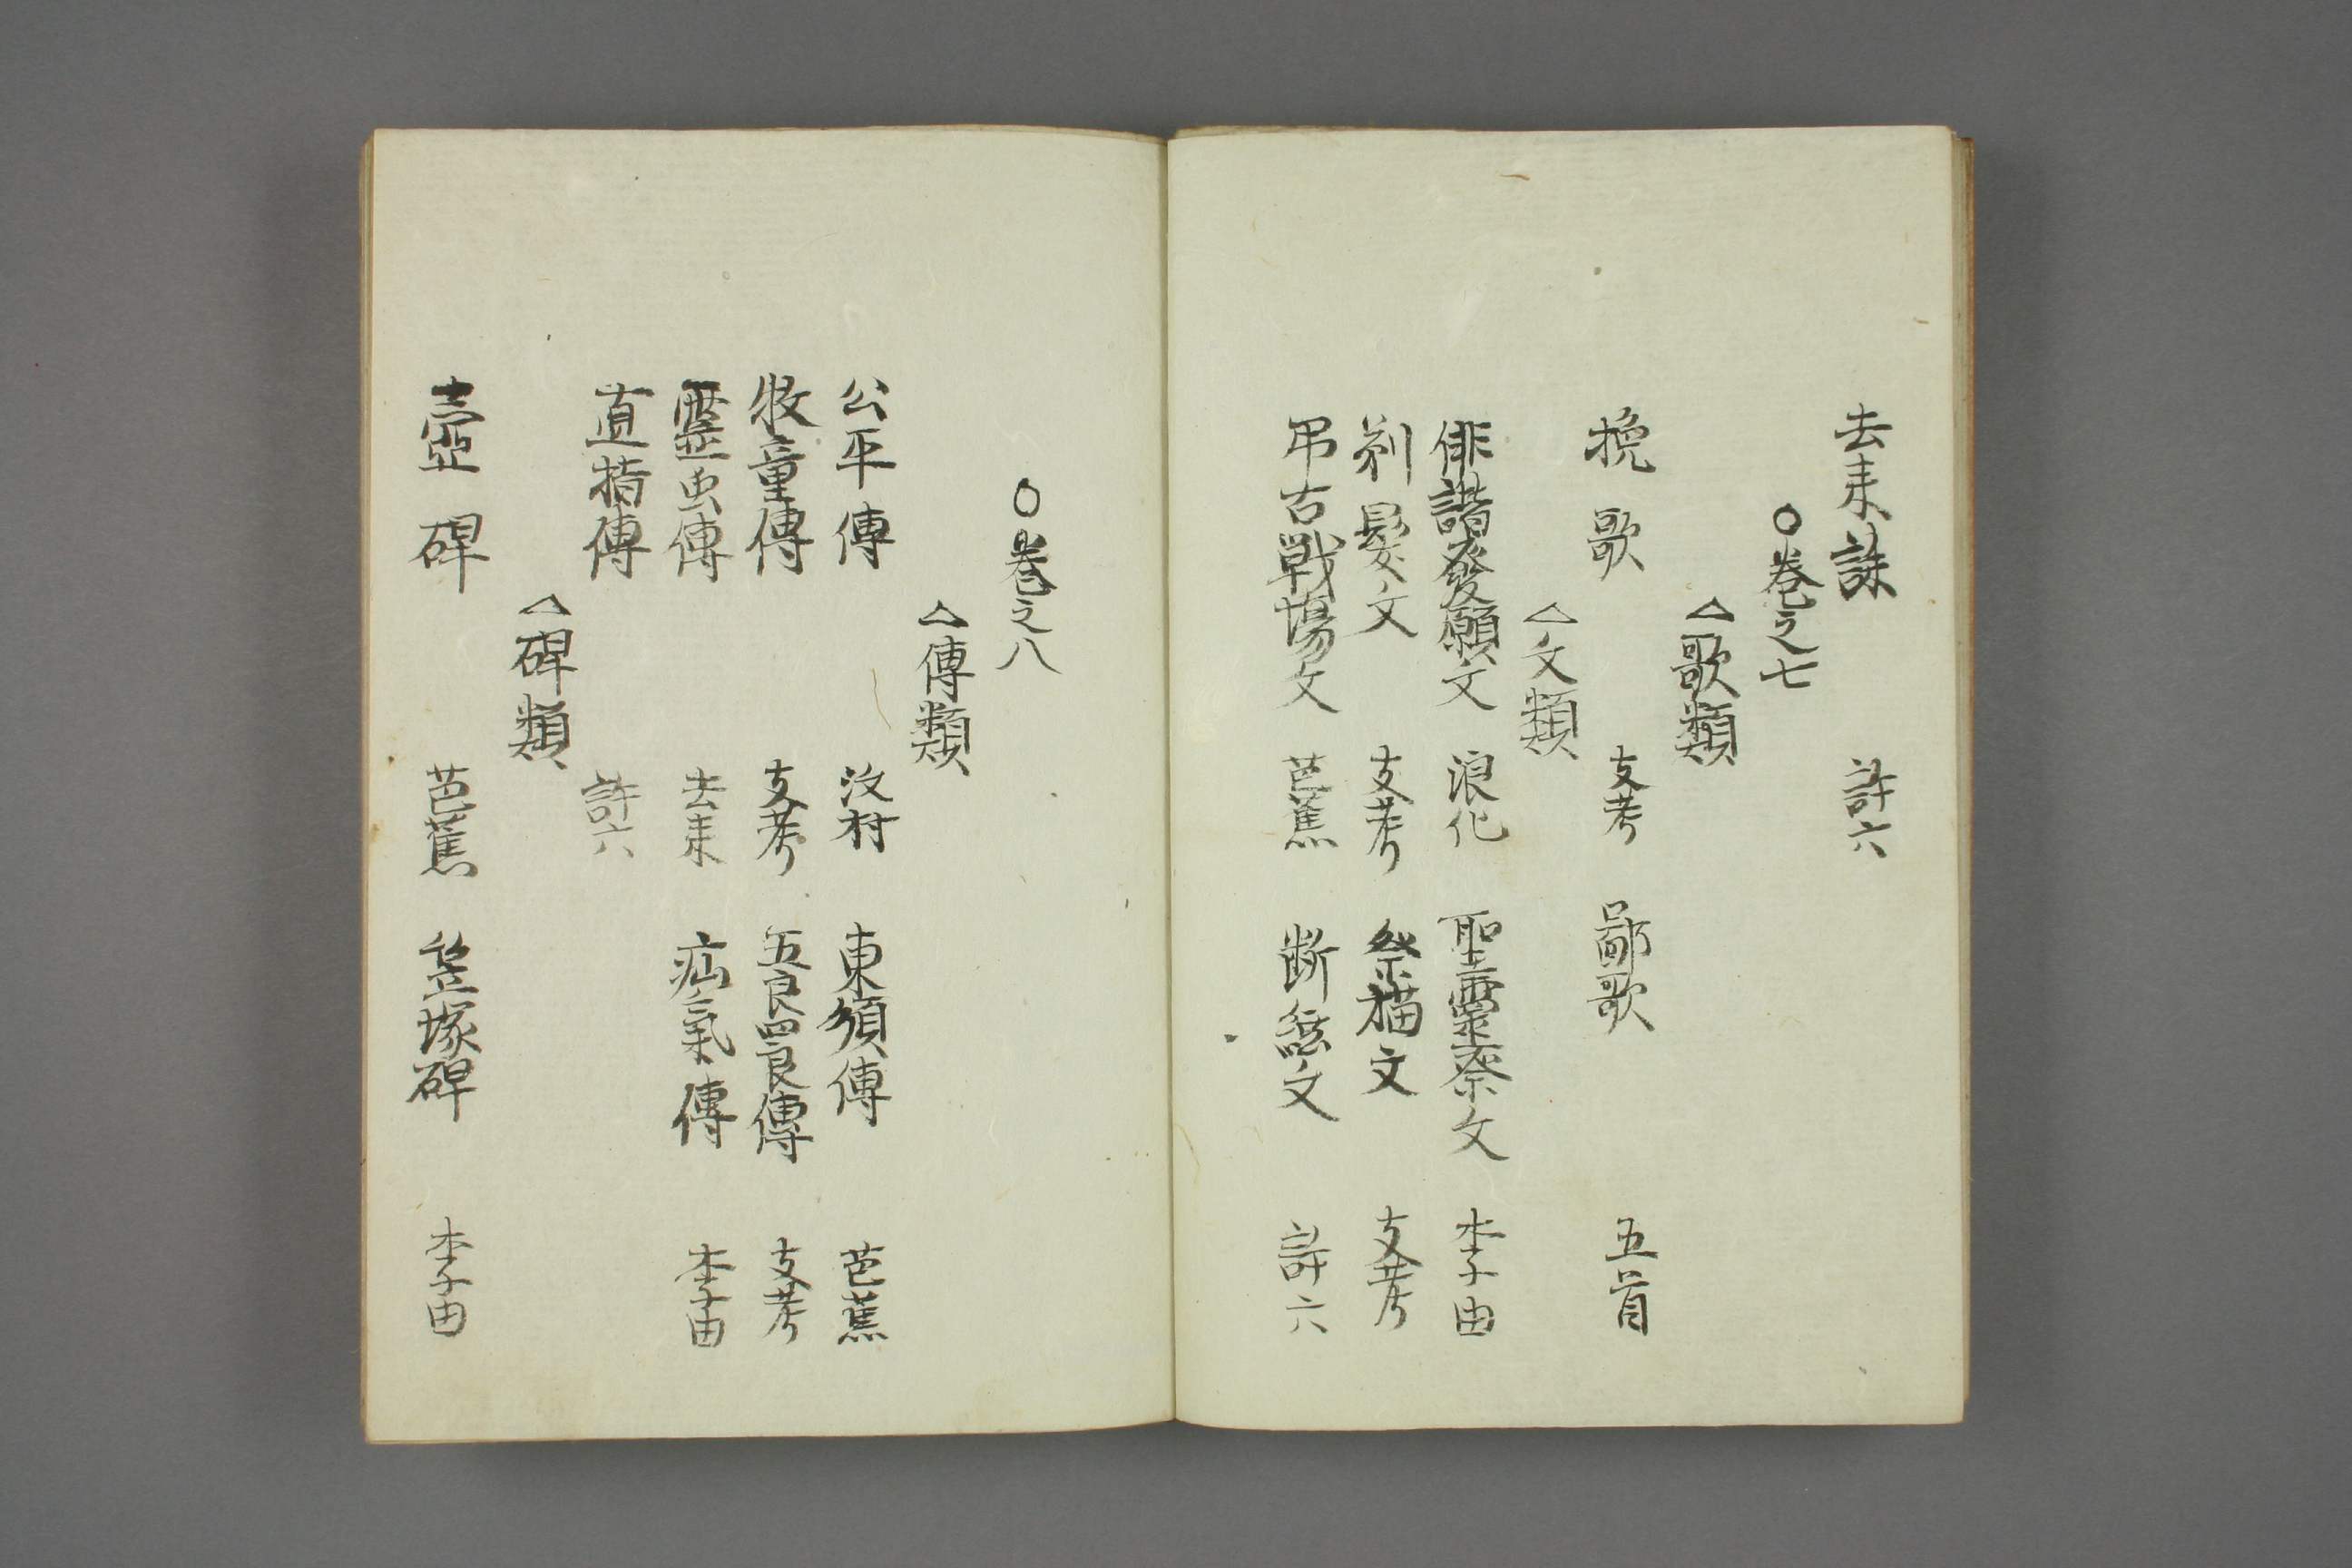 去来誄 許六
○巻之七
△歌類
挽歌 支考 鄙歌 五首
△文類
俳諧發願文 浪化 聖靈祭文 李由
剃髪文 支考 祭猫文 支考
弔古戦場文 芭蕉 断絃文 許六
○巻之八
△傳類
公平傳 汶村 東須傳 芭蕉
牧童傳 支考 五良四良傳 支考
靈虫傳 去来 疝氣傳 李由
直指傳 許六
△碑類
壺碑 芭蕉 塚碑 李由